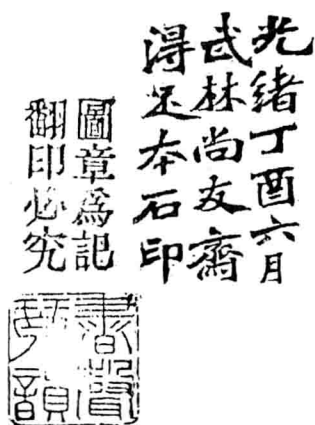 光緒丁酉六月
武林尚友齋
得足本石印
圖章為記
翻印必究
書聲
琴韻